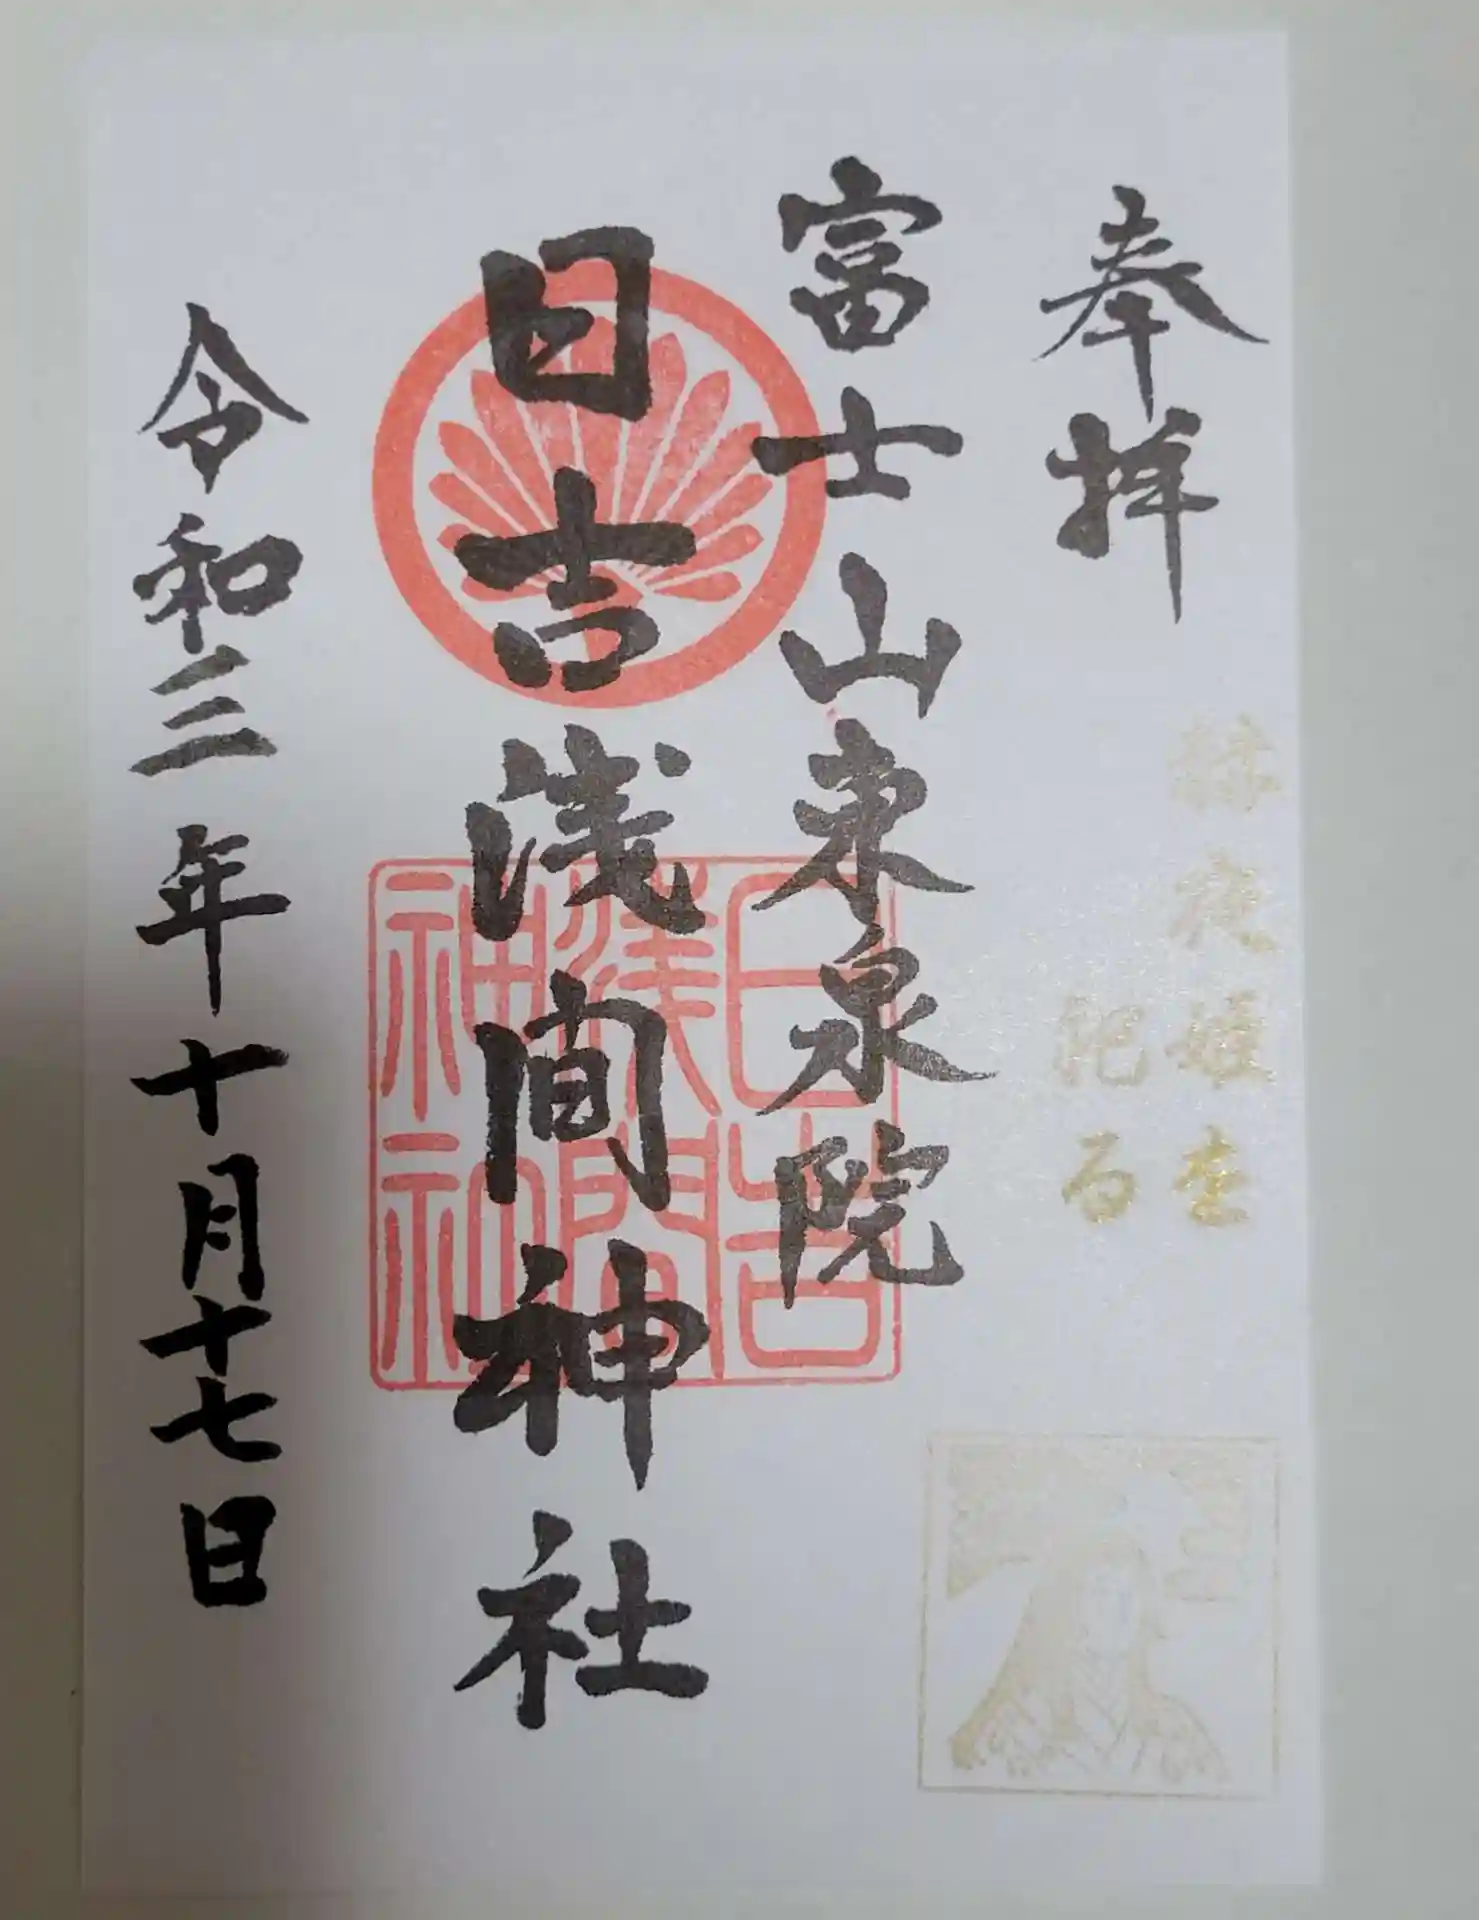 奉拝
富士山東泉院
日吉浅間神社
令和三年十月十七日
日吉
浅間
神社